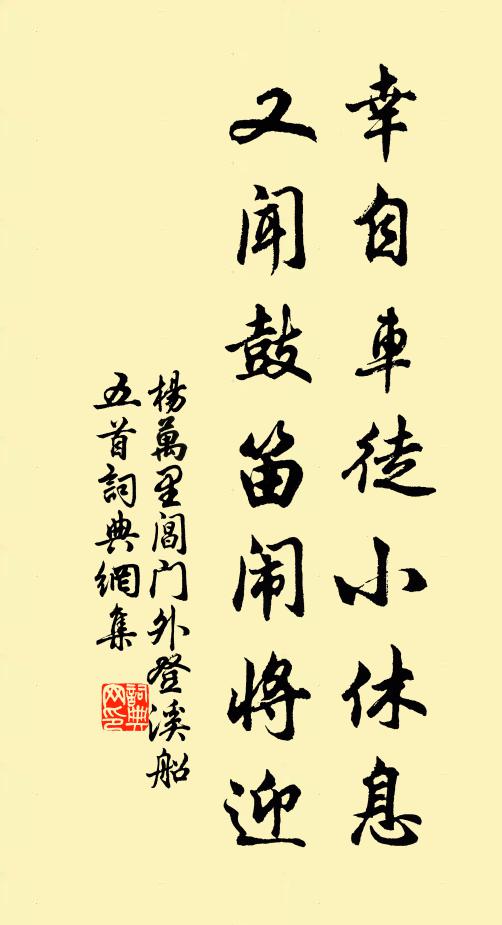 幸自車徒小休息
又闻鼓笛闹将迎
楊萬里閶门外登溪船
五首詞典網集
詞典网印